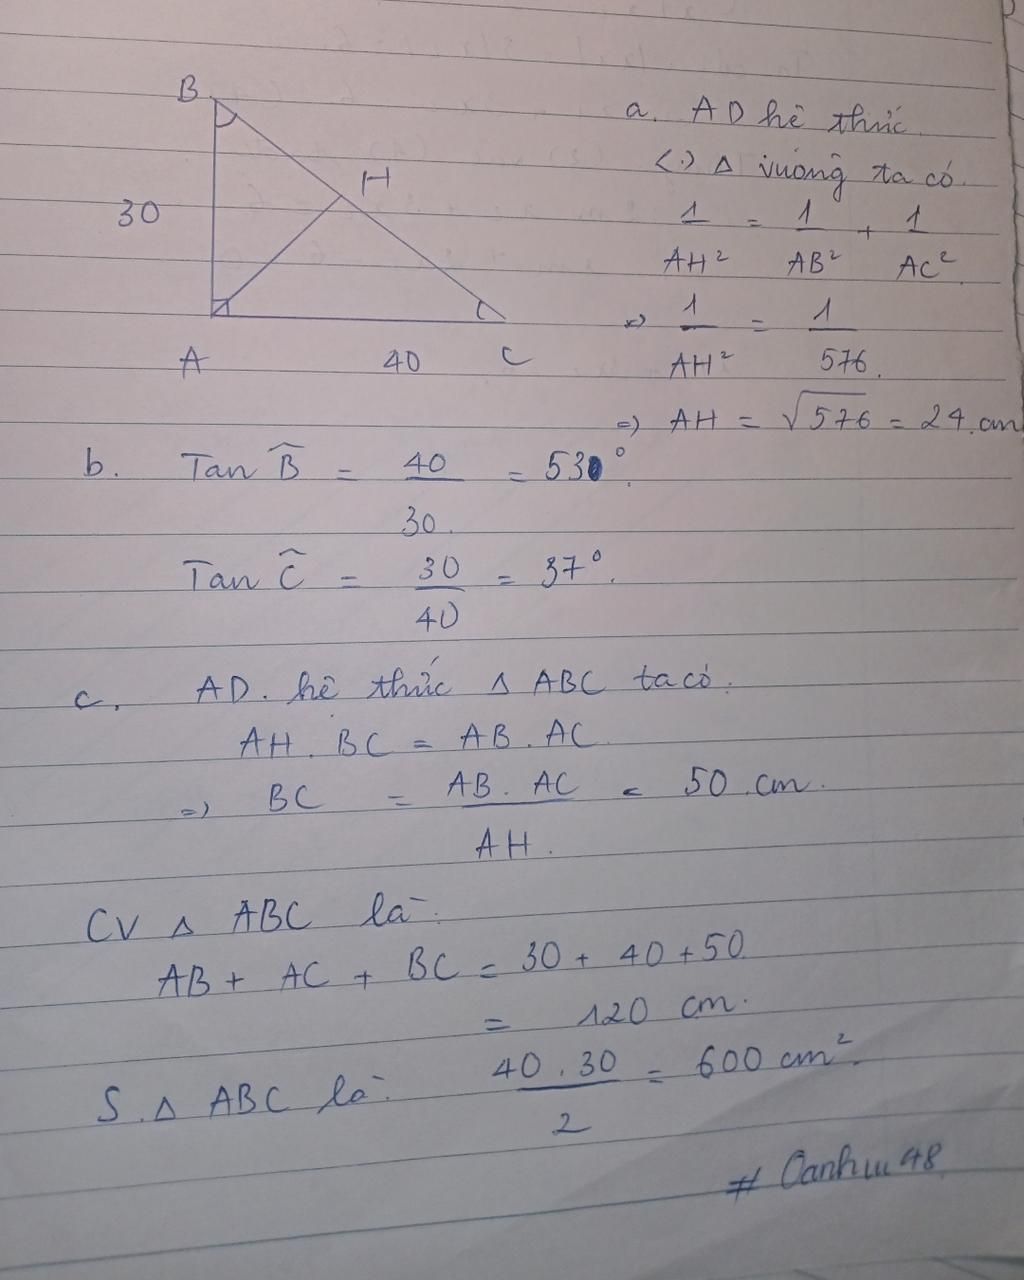 B
H
30
A
40
C
a. AD hê thức
<.> Δ vuông ta có
1/AH² = 1/AB² + 1/AC²
=> 1/AH² = 1/576.
=> AH = √576 = 24 cm
b. Tan B̂ = 40/30 = 53°.
Tan Ĉ = 30/40 = 37°.
c. AD. hê thức Δ ABC ta có.
AH . BC = AB . AC
=> BC = AB . AC/AH. = 50 cm.
CV Δ ABC là:
AB + AC + BC = 30 + 40 + 50
= 120 cm.
S. Δ ABC là: 40 . 30/2 = 600 cm².